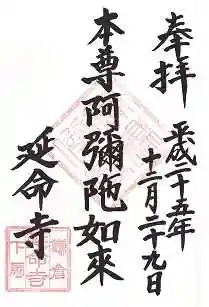 奉拝
平成二十五年
十二月二十九日
本尊阿彌陀如來
延命寺
鎌倉
下馬